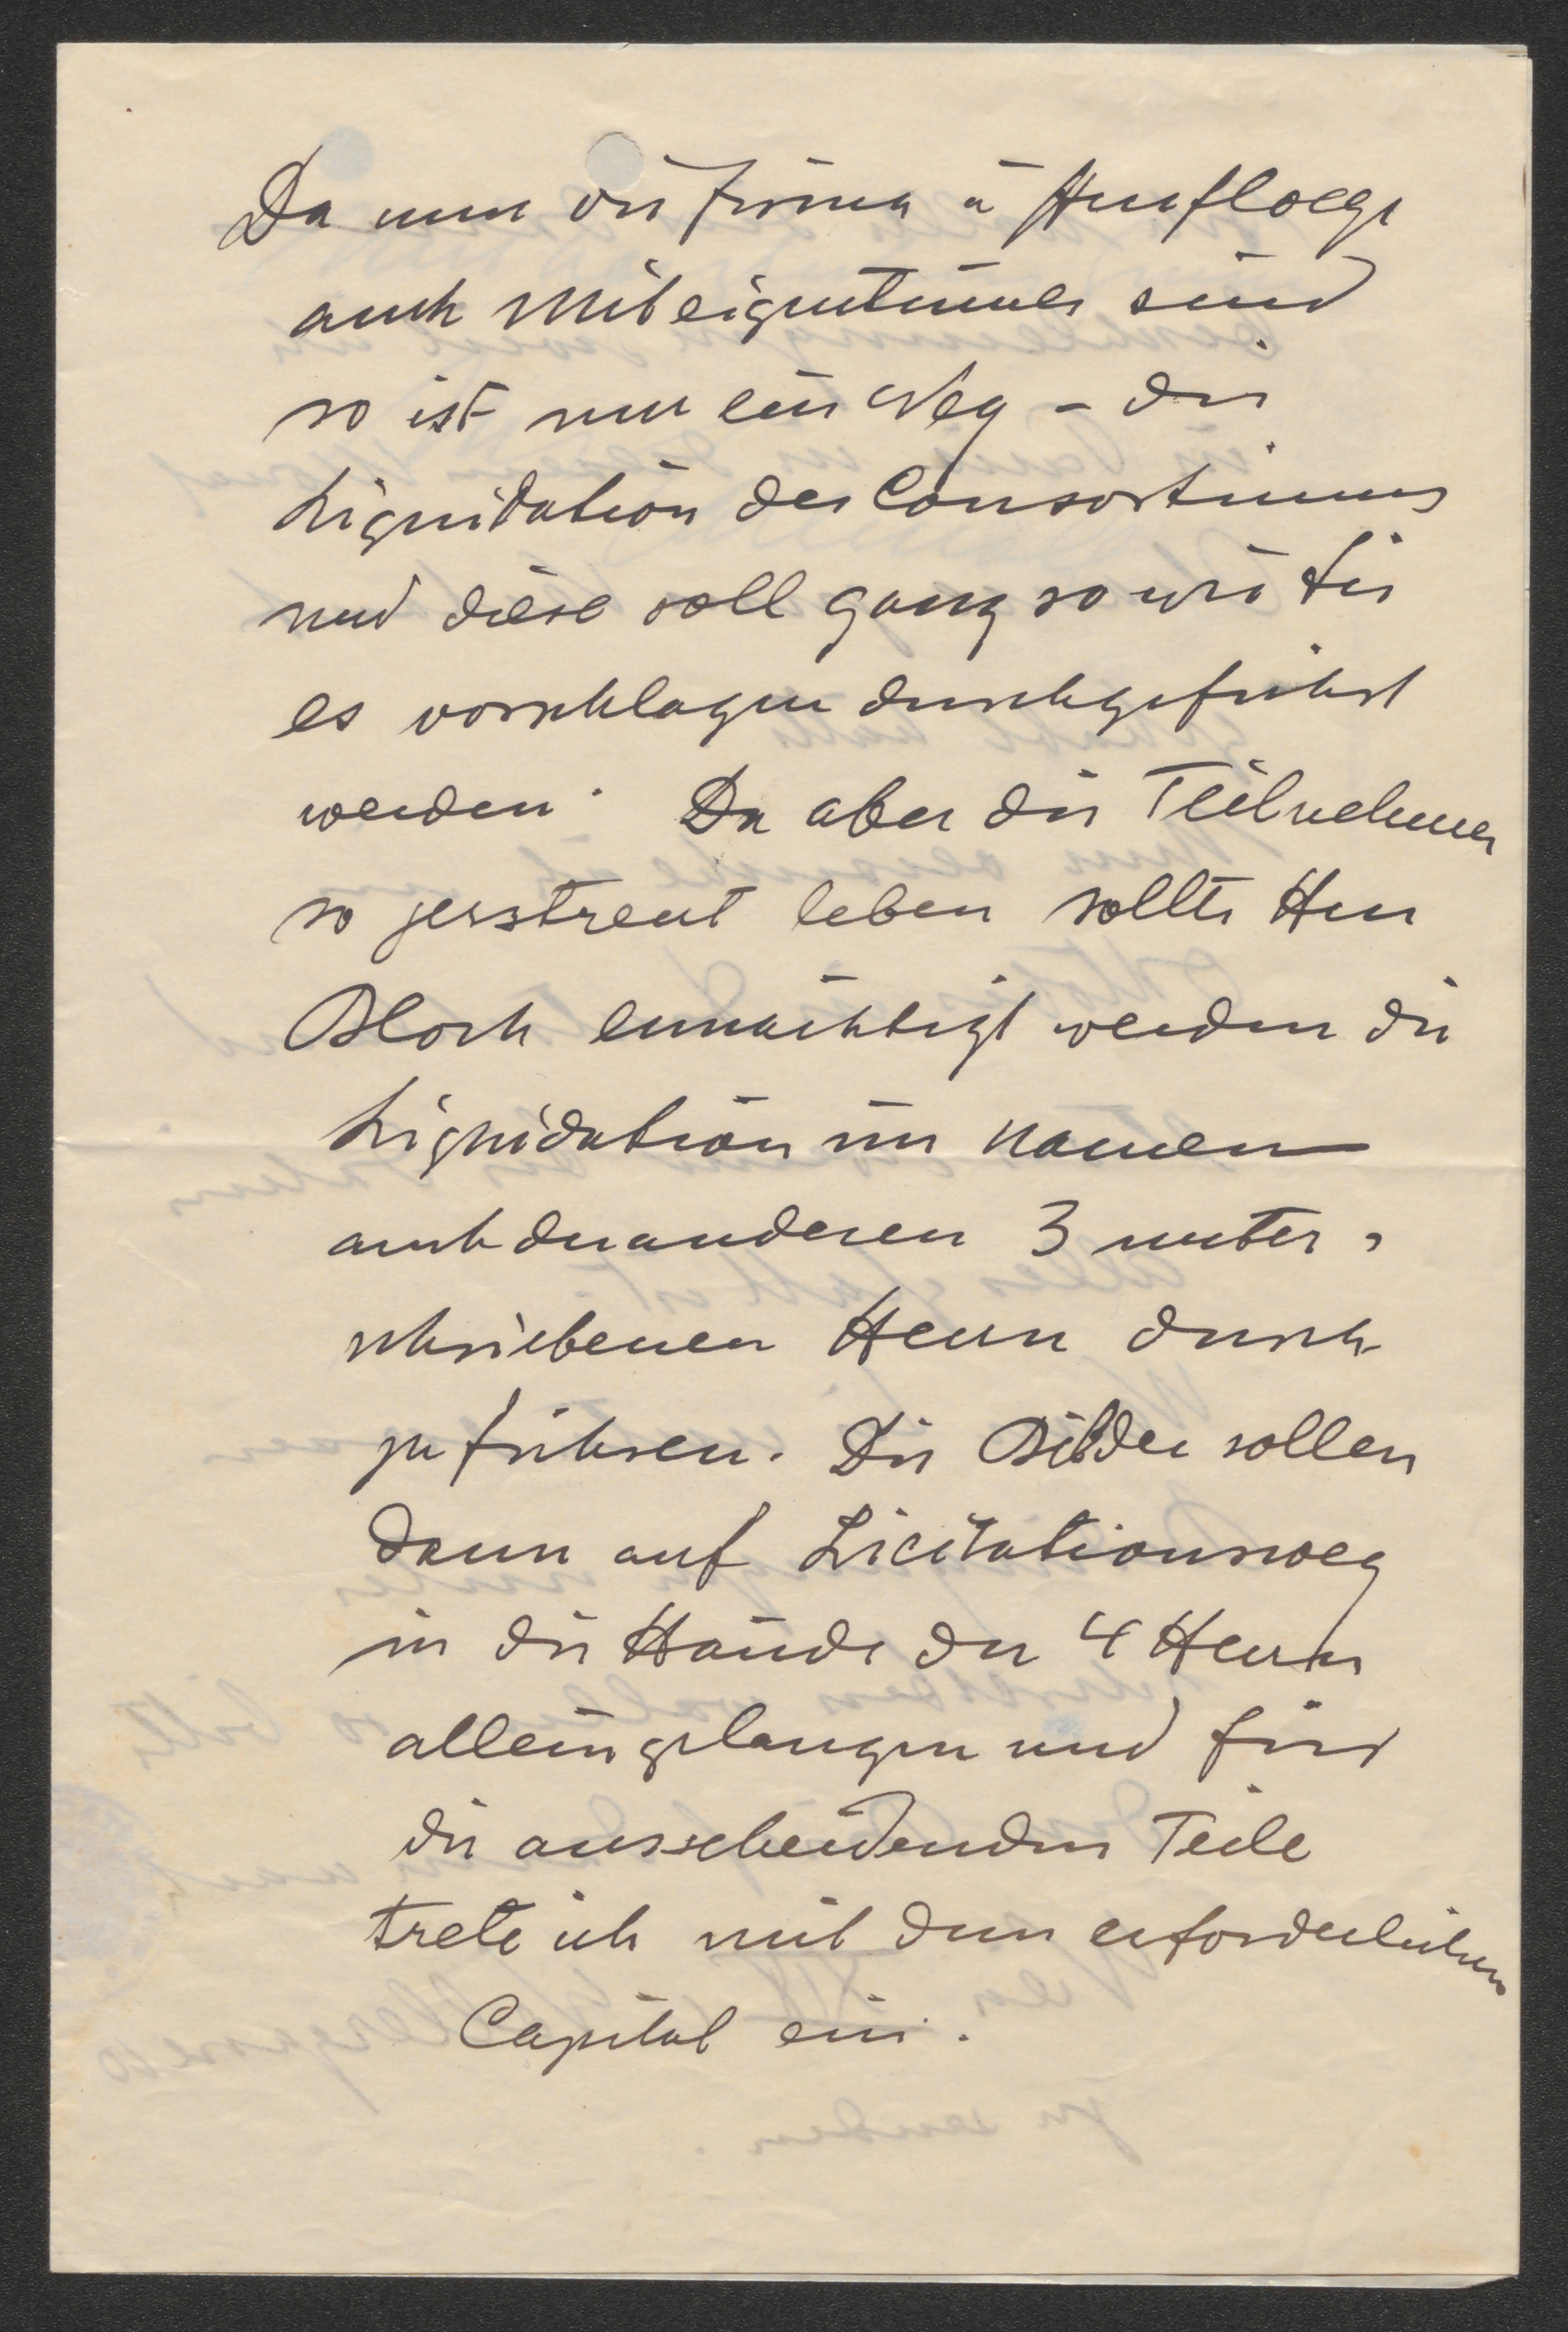 Da nun die Firma u Herr Floege
auch Miteigentümer sind
so ist nur ein Weg – die
Liquidation des Consortiums
und diese soll ganz so wie Sie
es vorschlagen durchgeführt
werden. Da aber die Teilnehmer
so zerstreut leben sollte Herr
Bloch ermächtigt werden die
Liquidation im Namen
auch der anderen 3 unter-
schriebenen Herrn durch
zu führen. Die Bilder sollen
dann auf Licitationsweg
in die Hände der 4 Herrn
allein gelangen und für
die ausscheidenden Teile
trete ich mit dem erforderlichen
Capital ein.